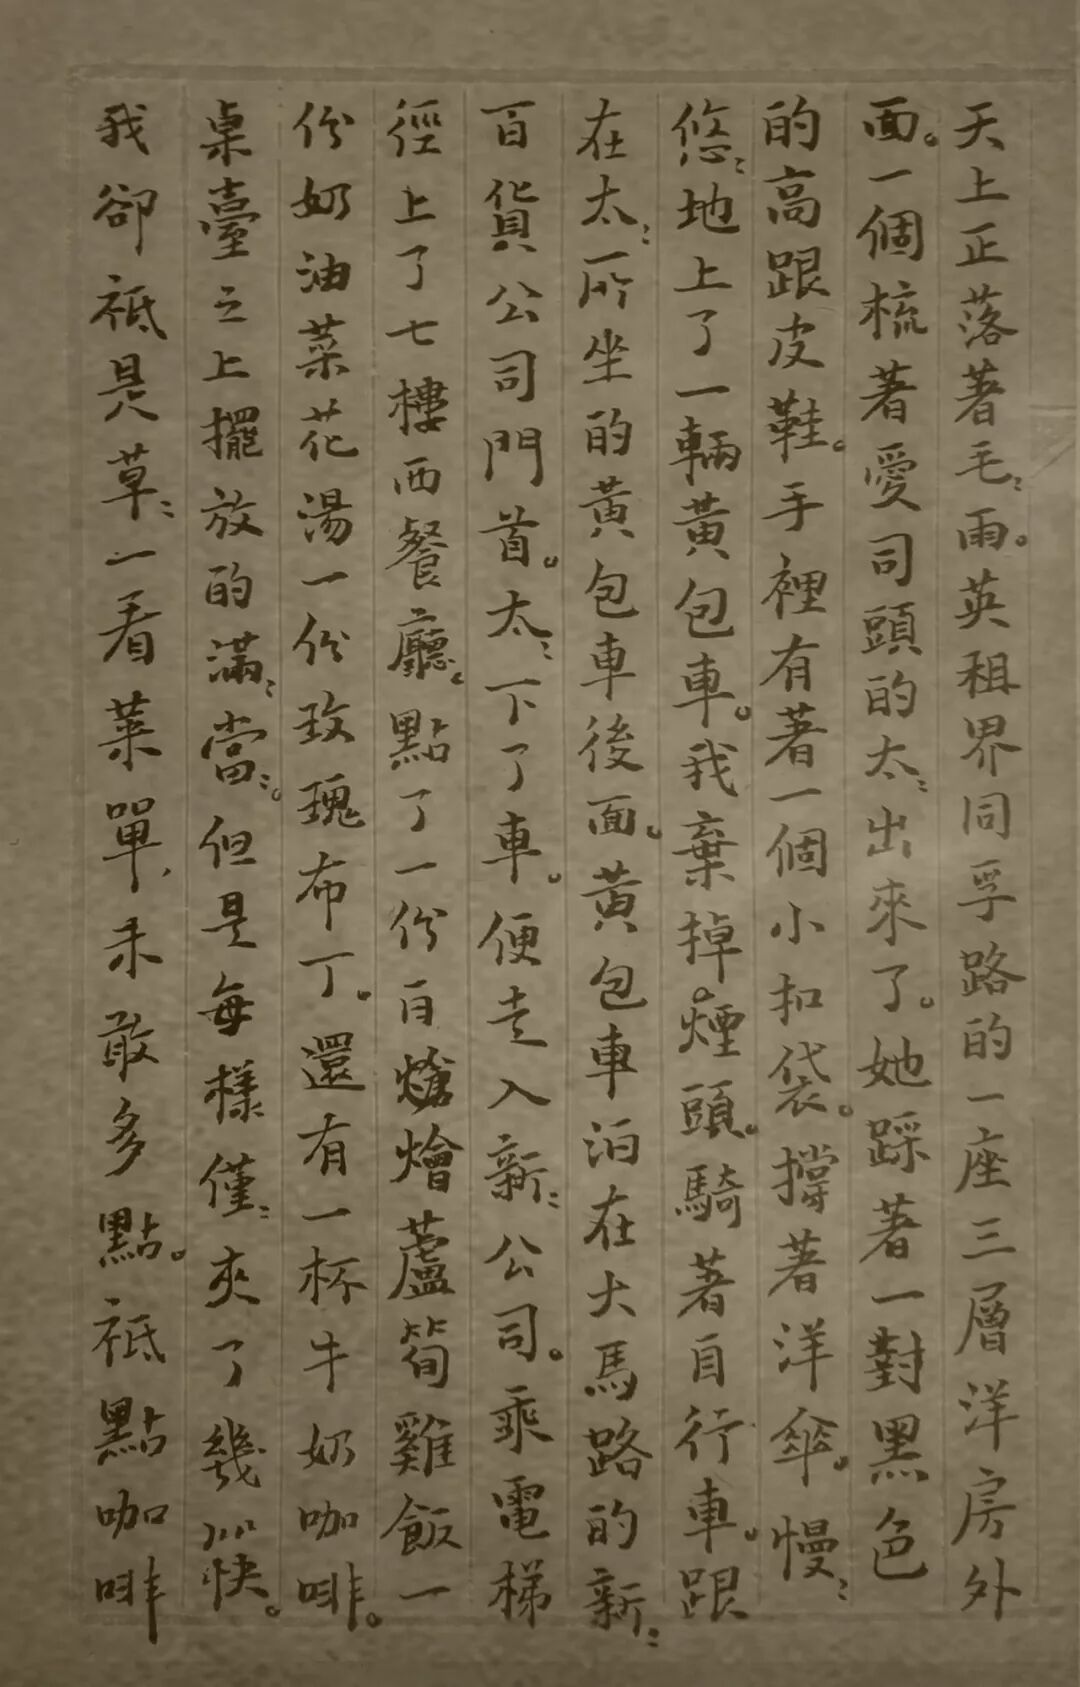 天上正落著毛〻雨。英租界同孚路的一座三層洋房外
面。一個梳著愛司頭的太〻出來了。她踩著一對黑色
的高跟皮鞋。手裡有著一個小扣袋。撐著洋傘。慢〻
悠〻地上了一輛黃包車。我棄掉煙頭。騎著自行車。跟
在太〻所坐的黃包車後面。黃包車泊在大馬路的新〻
百貨公司門首。太〻下了車。便走入新〻公司。乘電梯
徑上了七樓西餐廳。點了一份白燴蘆筍雞飯一
份奶油菜花湯一份玫瑰布丁。還有一杯牛奶咖啡。
桌臺之上擺放的滿〻當〻。但是每樣僅〻夾了幾筷。
我卻祇是草〻一看菜單，未敢多點。祇點咖啡